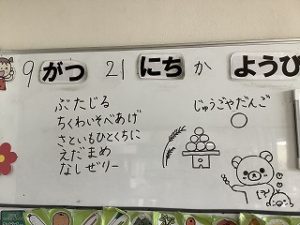 9 がつ 21 にち か ようび
ぶたじる
ちくわいそべあげ
さといもひとくちに
えだまめ
なしぜりー
じゅうごやだんご